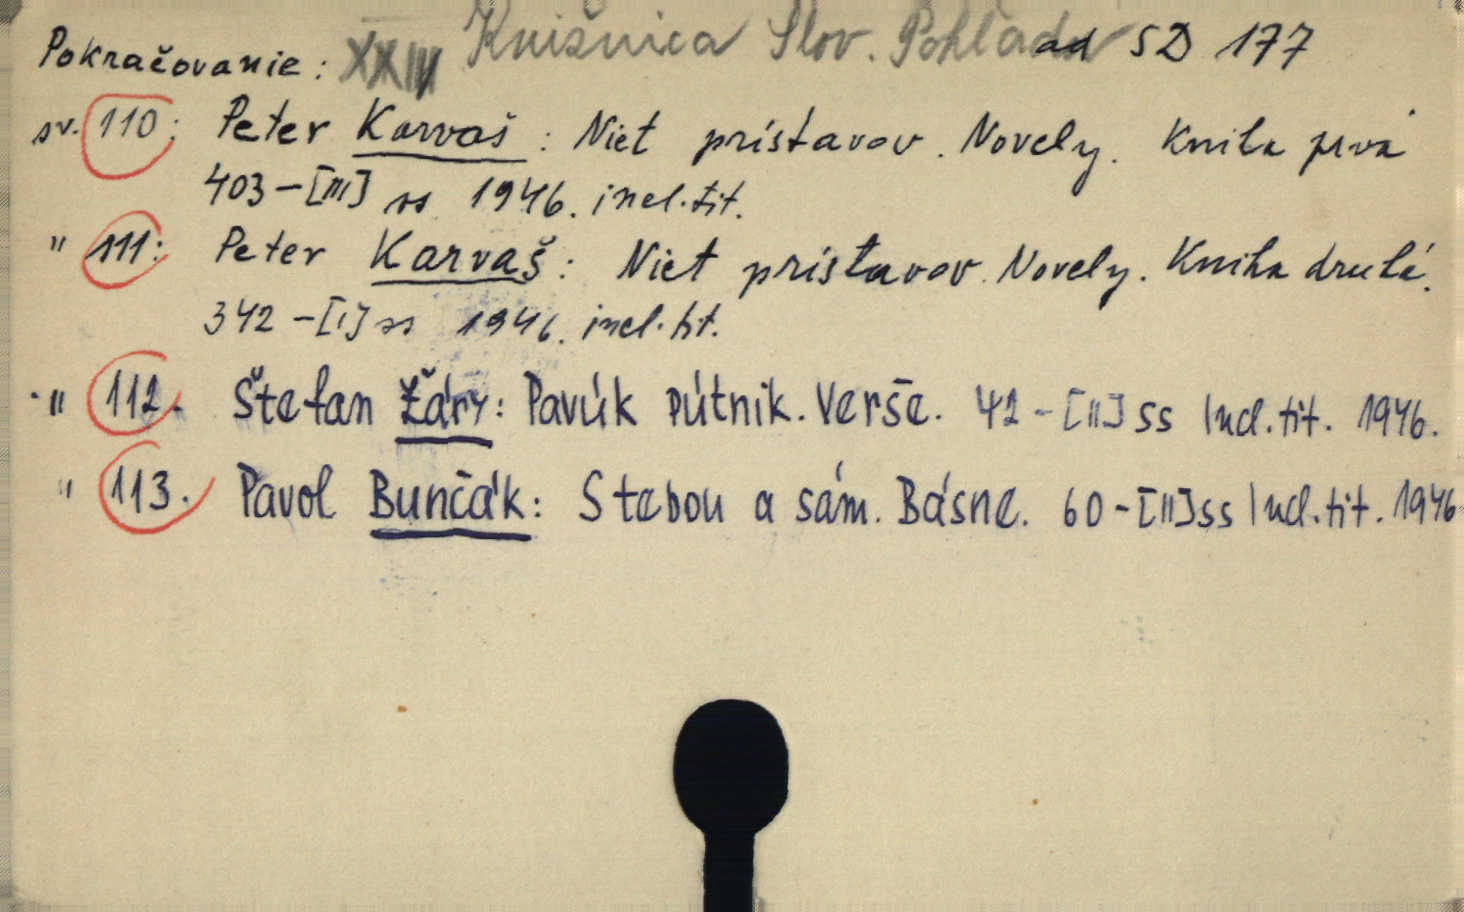 Pokračovanie: XXIII Knižnica Slov. Pohľadov ad SD 177
sv. 110: Peter Karvaš: Niet prístavov. Novely. Kniha prvá
403-[III] ss 1946. incl. tit.
" 111: Peter Karvaš: Niet prístavov. Novely. Kniha druhá.
342-[I] ss 1946. incl. tit.
" 112. Štefan Žáry: Pavúk pútnik. Verše. 42-[II] ss Incl. tit. 1946.
" 113. Pavol Bunčák: S tebou a sám. Básne. 60-[II] ss Incl. tit. 1946